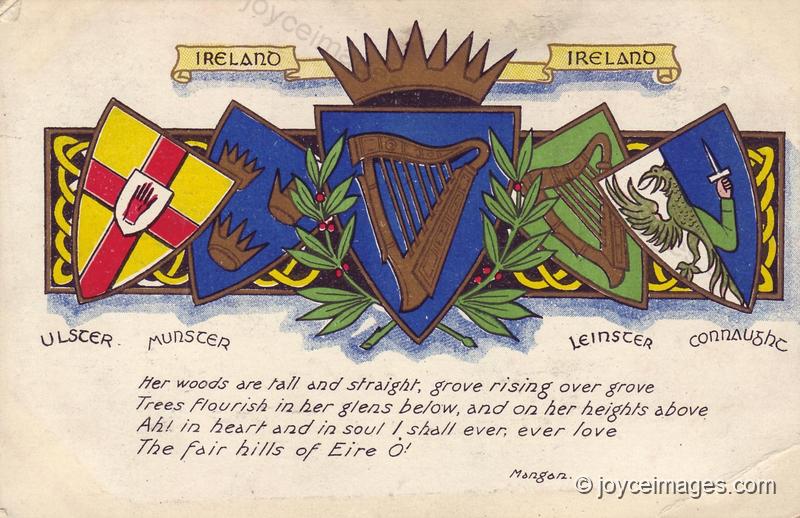 joyceimages
IRELAND IRELAND
ULSTER. MUNSTER LEINSTER CONNAUGHT
Her woods are tall and straight, grove rising over grove
Trees flourish in her glens below, and on her heights above
Ah! in heart and in soul I shall ever, ever love
The fair hills of Eire O!
Mangan.
© joyceimages.com